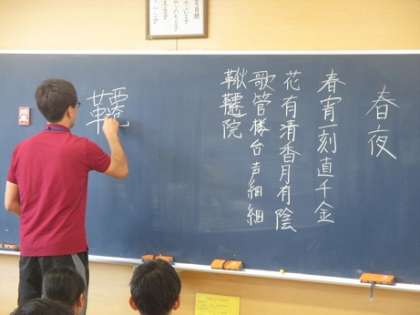 春夜
春宵一刻直千金
花有清香月有陰
歌管楼台声細細
鞦韆院
韆